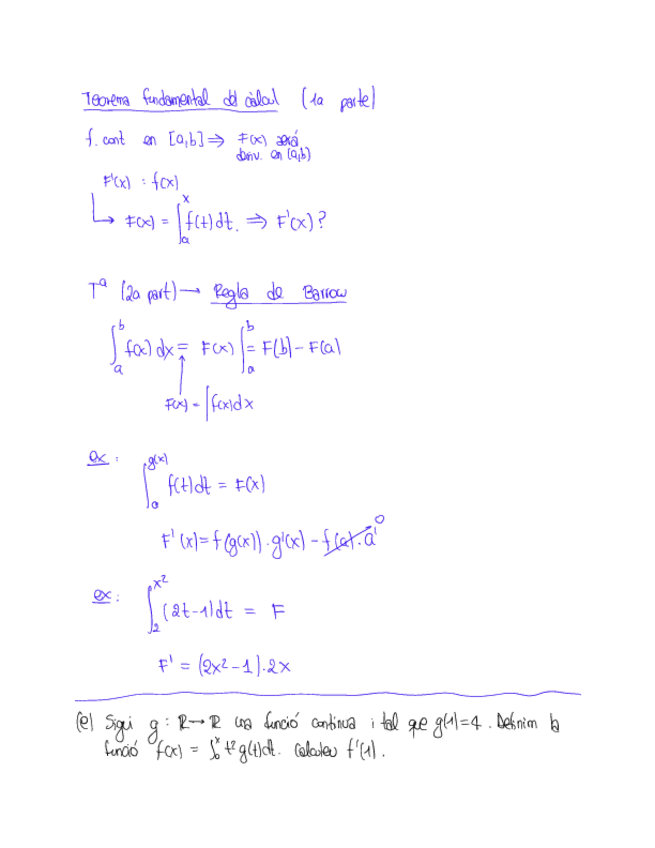 Teorema fundamental del càlcul (1a parte)
f. cont en [a,b] ⇒ F(x) será
deriv. en (a,b)
F'(x) = f(x)
↳ F(x) = ∫ₐˣ f(t) dt. ⇒ F'(x)?
Tª (2a part) → Regla de Barrow
∫ₐᵇ f(x) dx = F(x) |ₐᵇ = F(b) - F(a)
F(x) = ∫ f(x) dx
ex:
∫ₐ^g(x) f(t) dt = F(x)
F'(x) = f(g(x)) · g'(x) - f(a) · a' 0
ex: ∫₂^x² (2t-1) dt = F
F' = (2x² - 1) · 2x
(e) Sigui g: ℝ → ℝ una funció contínua i tal que g(1)=4. Definim la
funció f(x) = ∫₀ˣ t² g(t) dt. Calculeu f'(1).